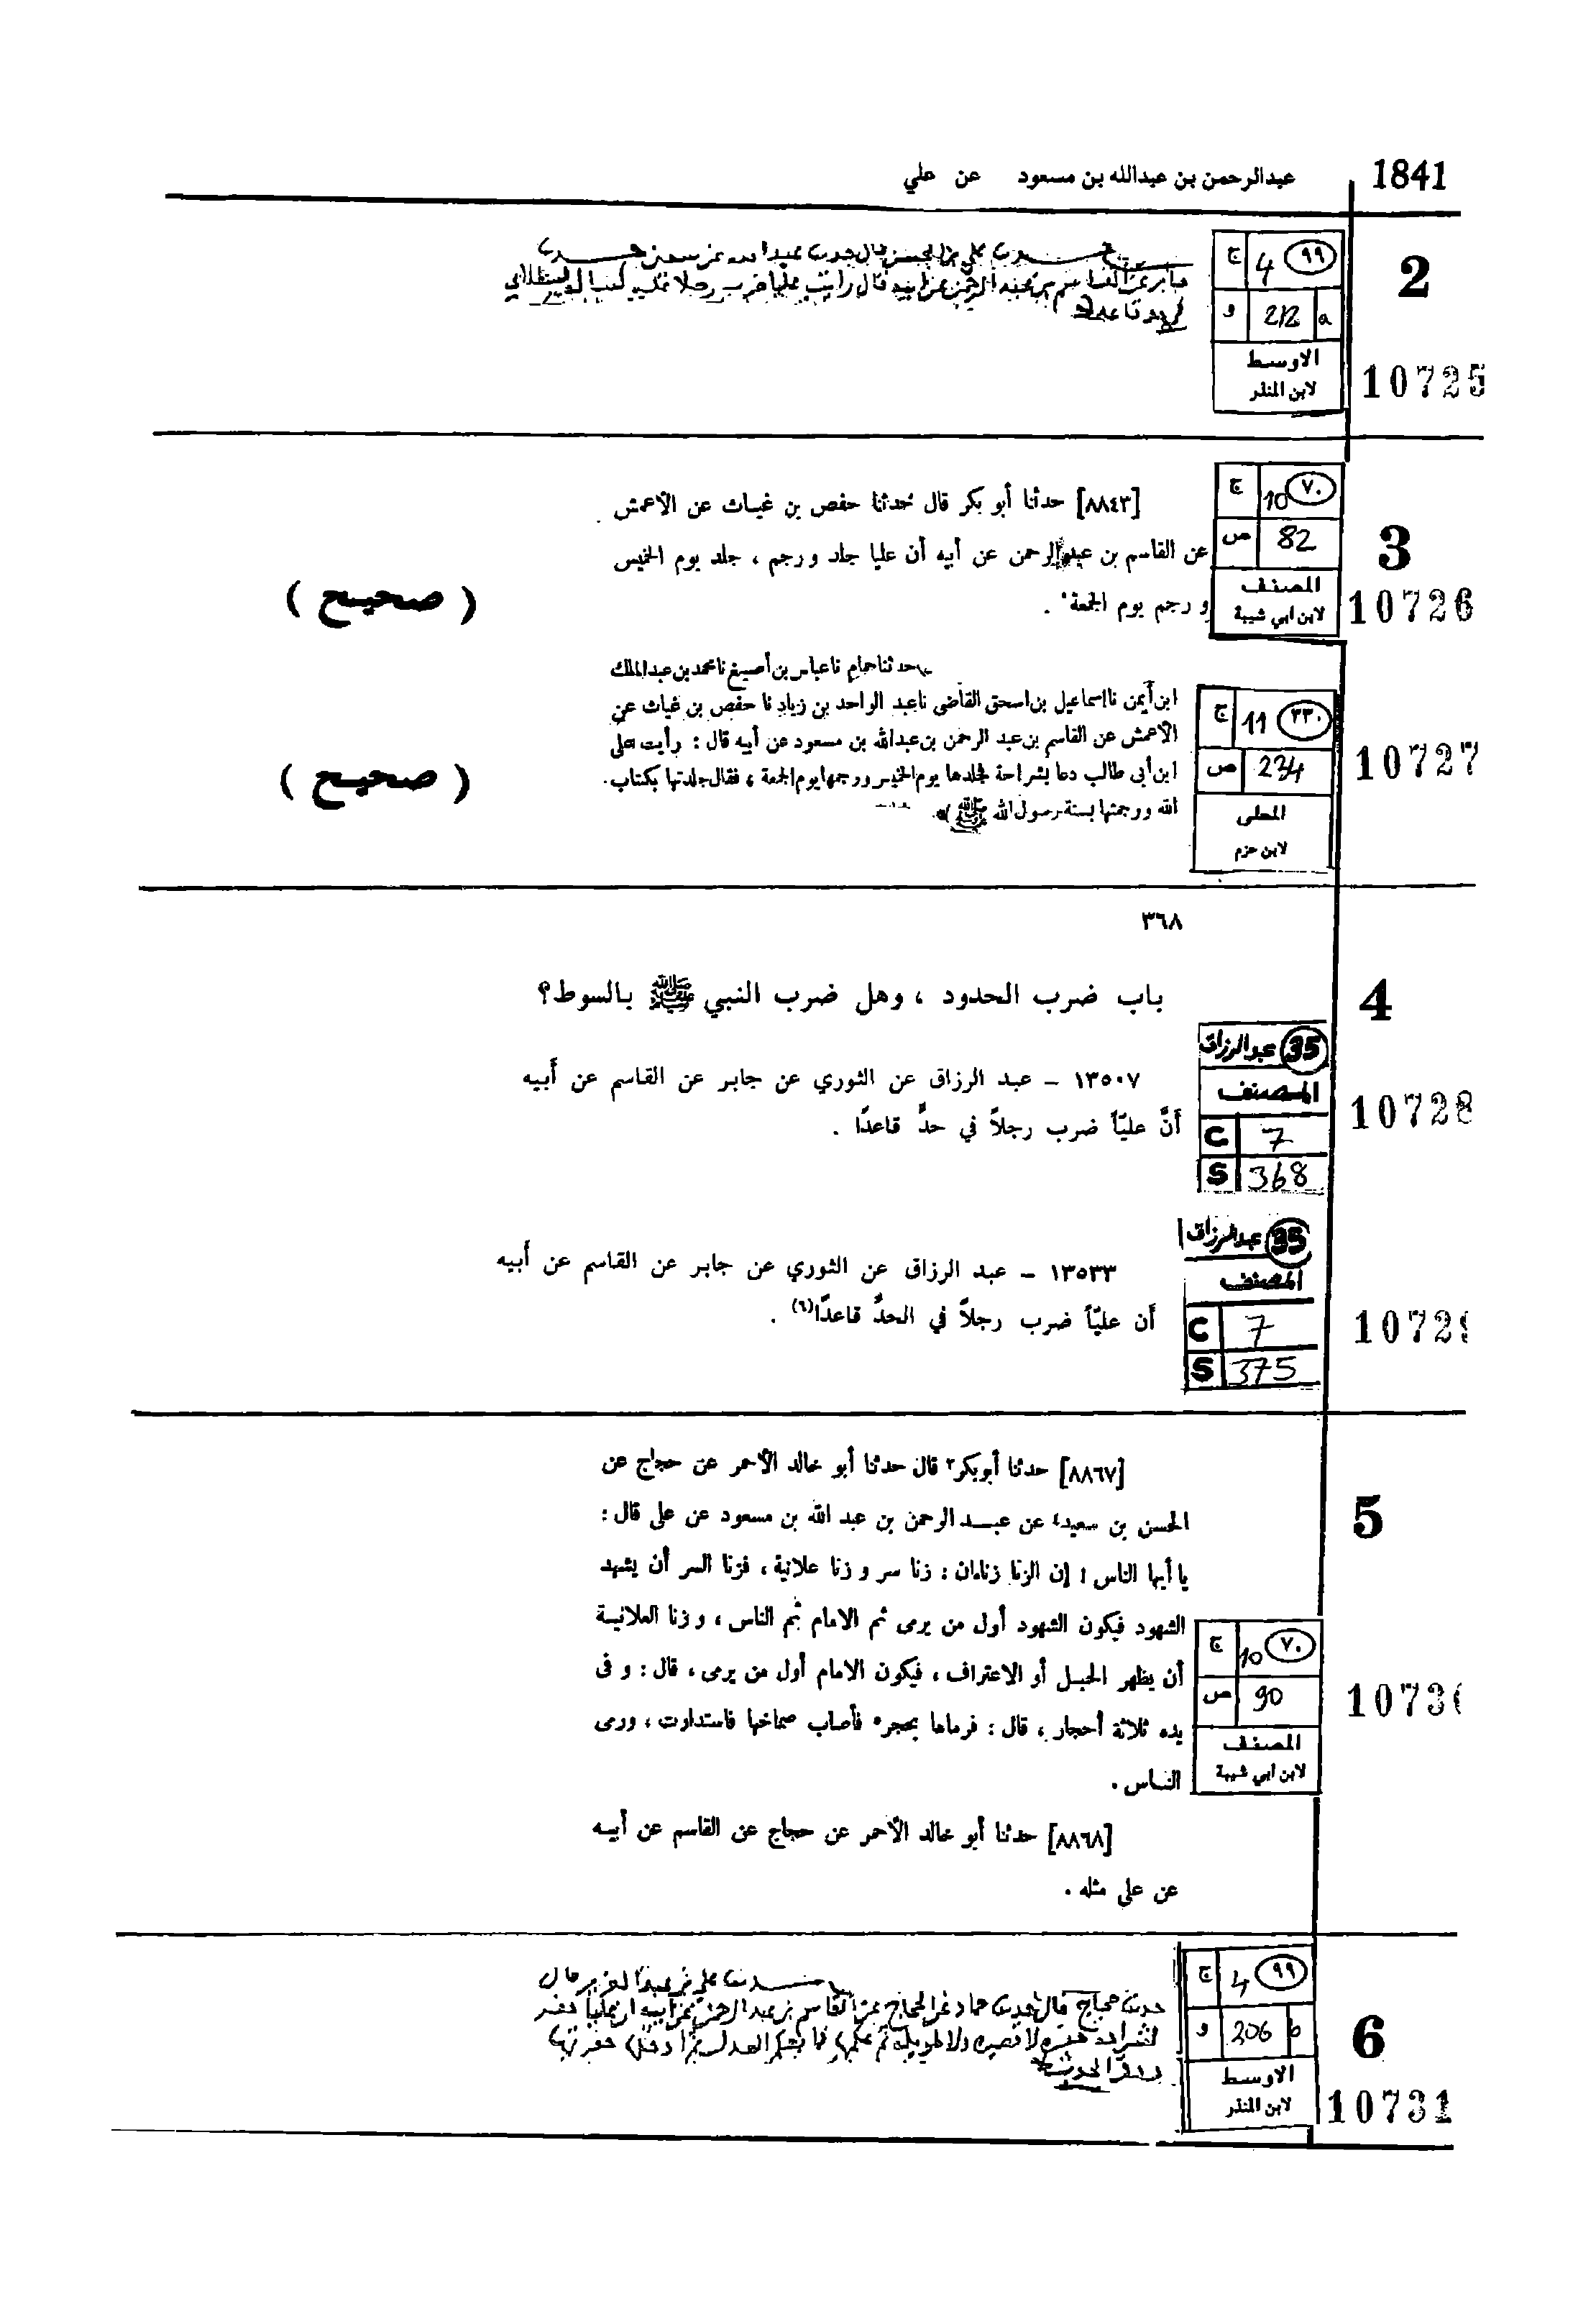 1841
عبدالرحمن بن عبدالله بن مسعود عن علي
2
ج 4 ٩٩
و 212 a
الاوسط
لابن المنذر
10725
علي بن الحسن قال عبد الله عن سفين
جابر عن القاسم بن عبد الرحمن عن ابيه قال رايت عليا ضرب رجلا
قاعدا
3
ج 10 ٧٠
ص 82
المصنف
لابن ابي شيبة
10726
[٨٨٤٣] حدثنا أبو بكر قال حدثنا حفص بن غياث عن الأعمش
عن القاسم بن عبد الرحمن عن أبيه أن عليا جلد و رجم ، جلد يوم الخميس
و رجم يوم الجمعة .
( صحيح )
ج 11 ٣٣٠
ص 234
المحلى
لابن حزم
10727
حدثنا حمام نا عباس بن أصبغ نا محمد بن عبد الملك
ابن أيمن نا اسماعيل بن اسحق القاضى نا عبد الواحد بن زياد نا حفص بن غياث عن
الأعمش عن القاسم بن عبد الرحمن بن عبد الله بن مسعود عن أبيه قال : رأيت على
ابن أبى طالب دعا بشراحة فجلدها يوم الخميس ورجمها يوم الجمعة ، فقال جلدتها بكتاب
الله ورجمتها بسنة رسول الله ﷺ
( صحيح )
٣٦٨
4
باب ضرب الحدود ، وهل ضرب النبي ﷺ بالسوط؟
35 عبد الرزاق
المصنف
C 7
S 368
10728
١٣٥٠٧ – عبد الرزاق عن الثوري عن جابر عن القاسم عن أبيه
أنَّ عليّاً ضرب رجلاً في حدٍّ قاعدًا .
35 عبد الرزاق
المصنف
C 7
S 375
10729
١٣٥٣٣ – عبد الرزاق عن الثوري عن جابر عن القاسم عن أبيه
أن عليّاً ضرب رجلاً في الحدِّ قاعدًا(٦) .
5
[٨٨٦٧] حدثنا أبو بكر٢ قال حدثنا أبو خالد الأحمر عن حجاج عن
الحسن بن سعيد٤ عن عبد الرحمن بن عبد الله بن مسعود عن على قال :
يا أيها الناس ! إن الزنا زناءان : زنا سر و زنا علانية ، فزنا السر أن يشهد
الشهود فيكون الشهود أول من يرمى ثم الامام ثم الناس ، و زنا العلانية
أن يظهر الحبل أو الاعتراف ، فيكون الامام أول من يرمى ، قال : و فى
يده ثلاثة أحجار ، قال : فرماها بحجر٥ فأصاب صماخها فاستدارت ، ورمى
الناس .
ج 10 ٧٠
ص 90
المصنف
لابن أبي شيبة
10730
[٨٨٦٨] حدثنا أبو خالد الأحمر عن حجاج عن القاسم عن أبيه
عن على مثله .
6
ج 4 ٩٩
و 206 b
الاوسط
لابن المنذر
10731
علي بن عبد العزيز قال
حدثنا حجاج قال حدثنا حماد عن الحجاج عن القاسم بن عبد الرحمن عن ابيه ان عليا حفر
لشراحة حفيره لا قصيره ولا طويله